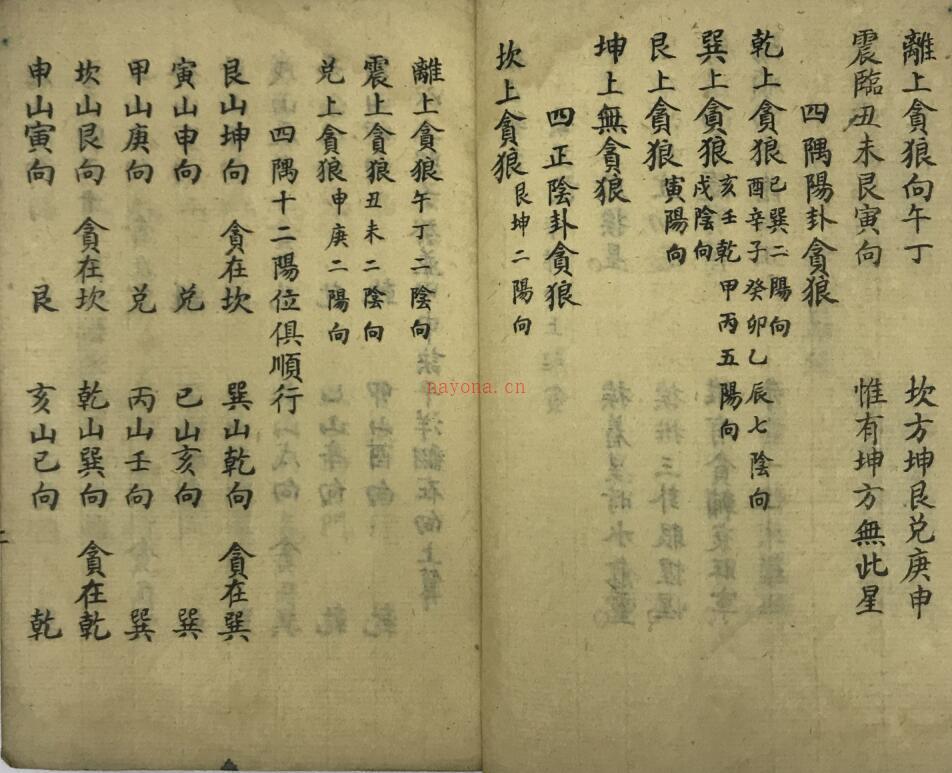 離上貪狼向午丁　坎方坤艮兑庚申
震臨丑未艮寅向　惟有坤方無此星
四隅陽卦貪狼
乾上貪狼　已巽二陽向
酉辛子癸卯乙辰七陰向
巽上貪狼　亥壬乾甲丙五陽向
戌陰向
艮上貪狼　寅陽向
坤上無貪狼
四正陰卦貪狼
坎上貪狼　艮坤二陽向
離上貪狼　午丁二陰向
震上貪狼　丑未二陰向
兑上貪狼　申庚二陽向
四隅十二陽位俱順行
艮山坤向　貪在坎　巽山乾向　貪在巽
寅山申向　兑　已山亥向　巽
甲山庚向　兑　丙山壬向　巽
坎山艮向　貪在坎　乾山巽向　貪在乾
申山寅向　艮　亥山已向　乾
nayona.cn